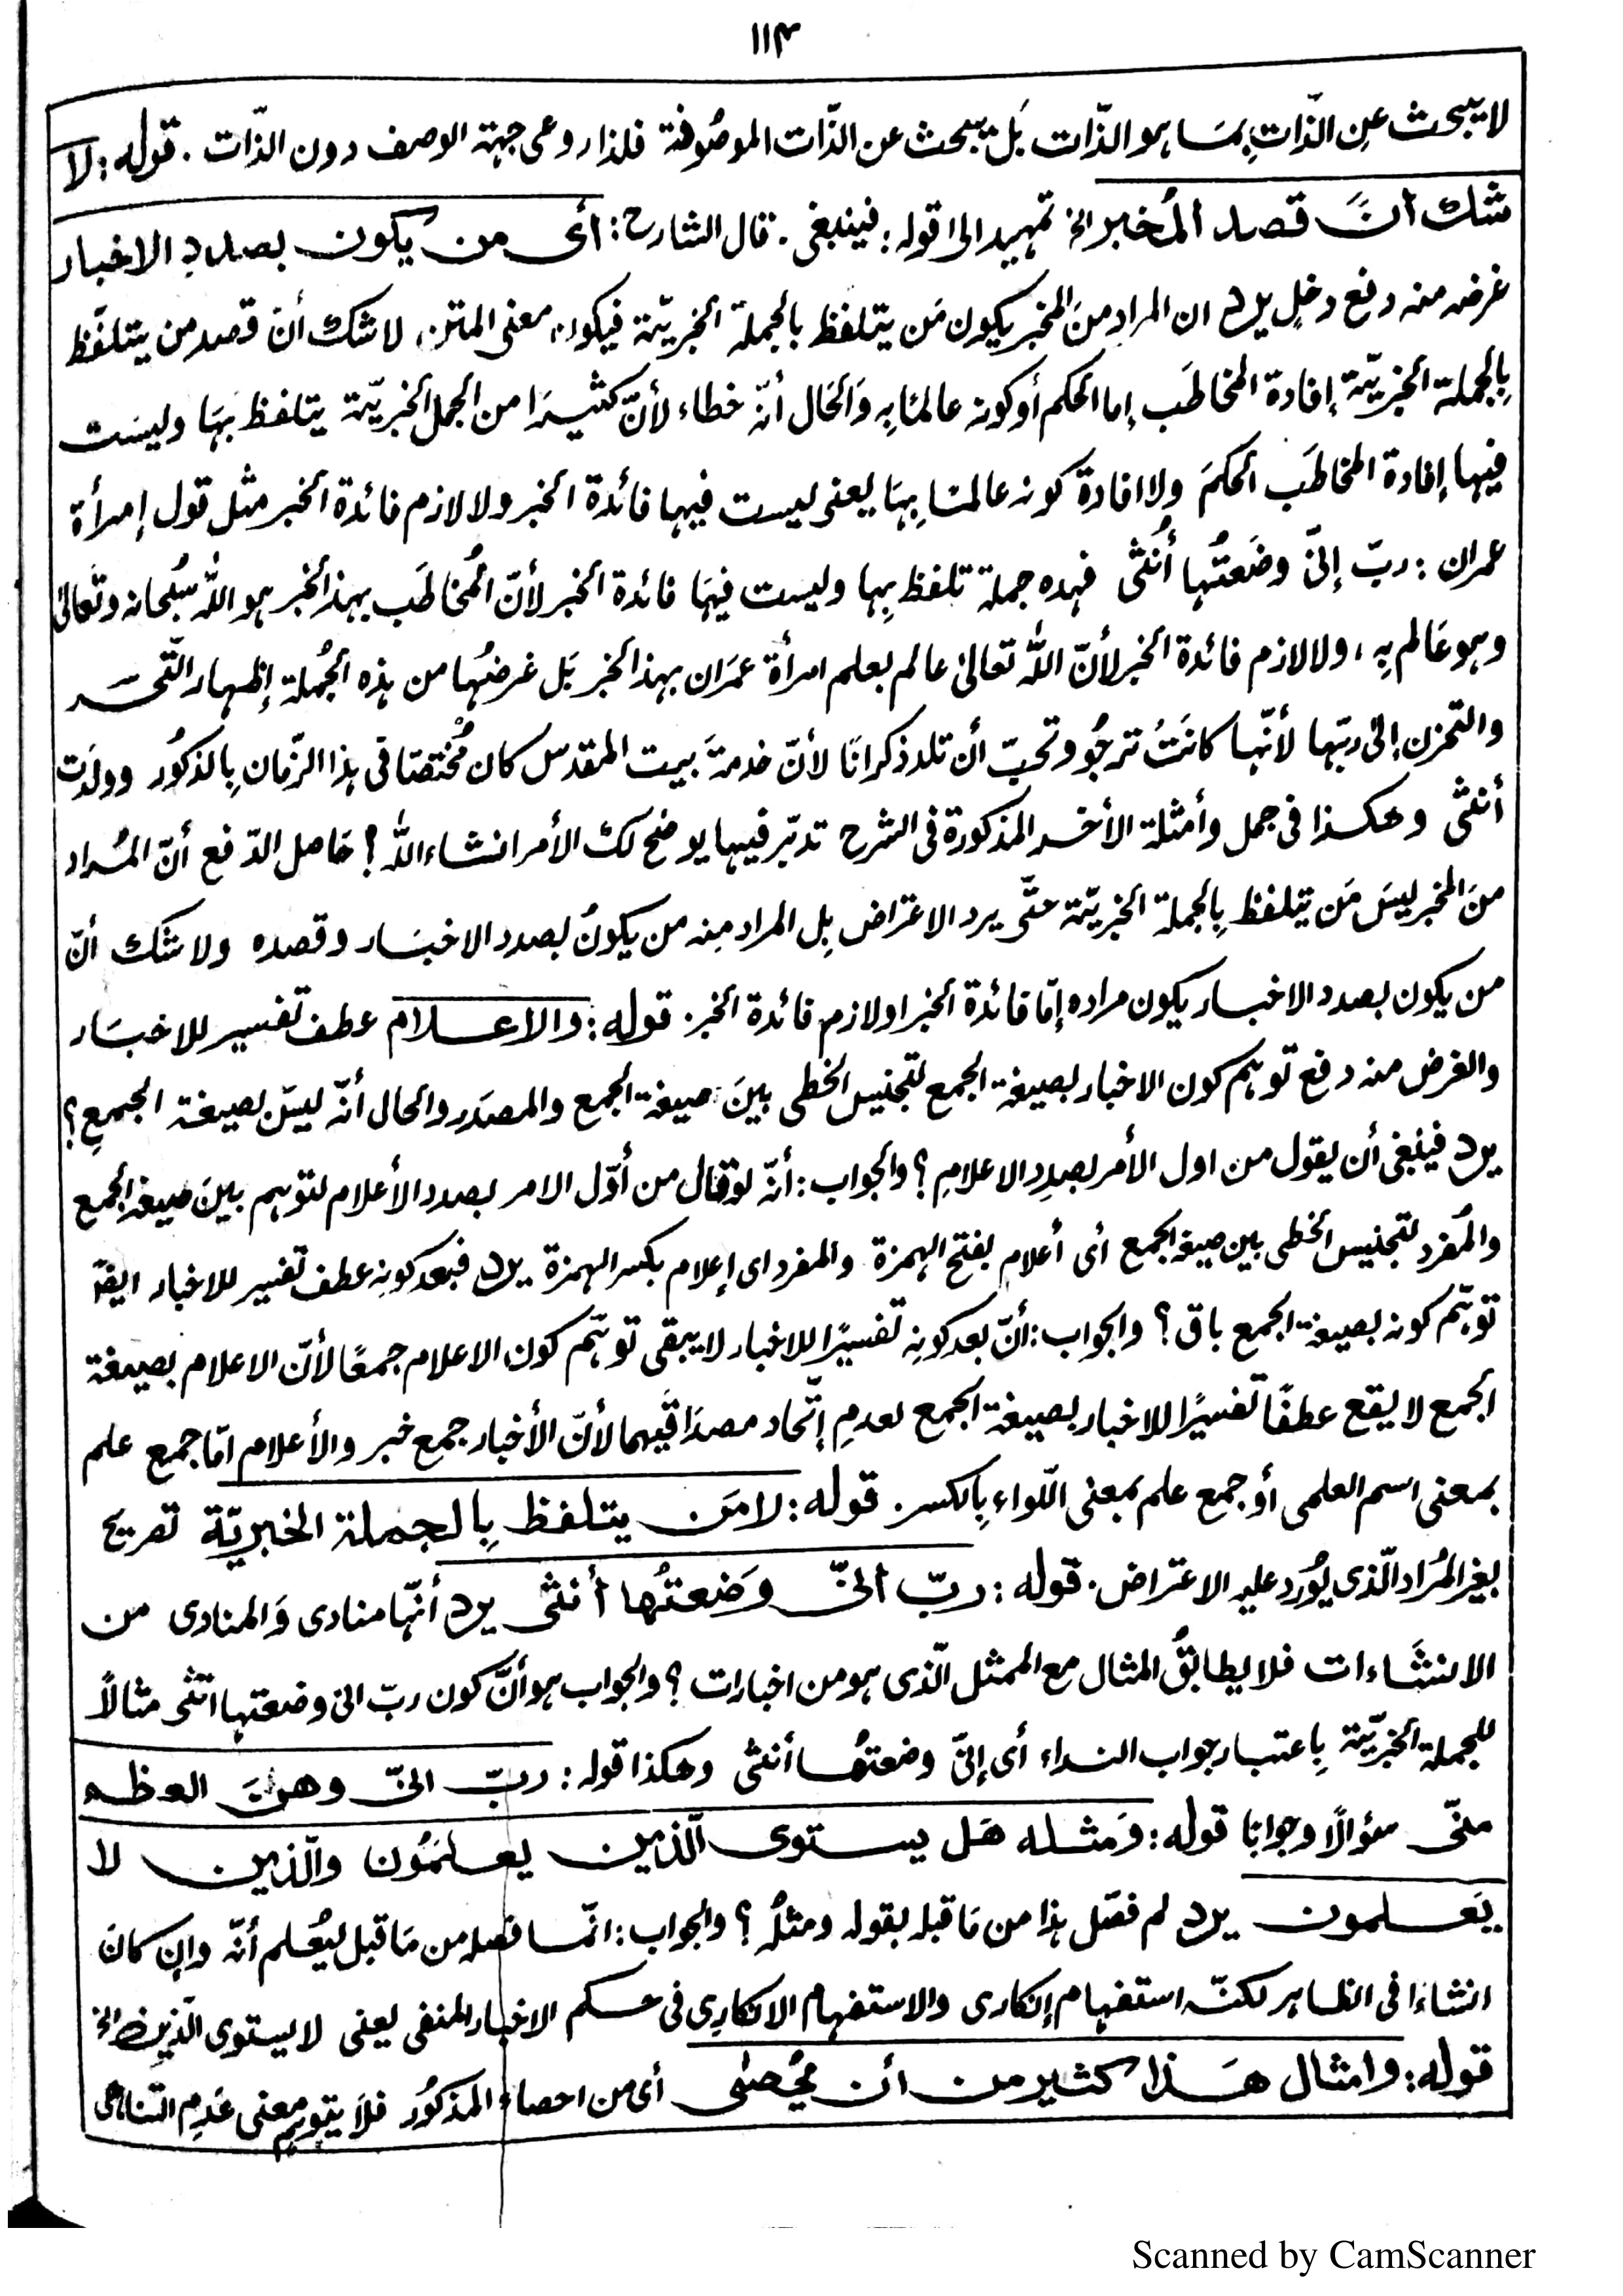 ١١٤
لا يبحث عن الذّاتِ بِمَا هو الذّات بَل يبحث عن الذّات الموصُوفة فلذا روعى جهة الوصف دون الذّات . قوله : لا
شك أنّ قصد المُخبر الخ تمهيد الى قوله : فينبغى . قال الشارح : أى من يُكون بصددِ الاخبار
غرضه منه دفع دخلٍ يرد ان المراد منَ المخبر يكون مَن يتلفظ بالجملة الخبريّة فيكون معنى المتن لا شك أنّ قصد من يتلفّظ
بِالجملة الخبريّة إفادة المخاطَب إما الحكم أو كونه عالمًا بِهِ وَالحَال أنّه خطاء لأنّ كثيرًا من الجمل الخبريّة يتلفظ بهَا وليسَت
فيها إفادة المخاطَب الحكمَ ولا افادةُ كونه عالمًا بِهَا يعنى ليست فيها فائدة الخبر ولا لازم فائدة الخبر مثل قول إمرأة
عمران : ربّ إنّى وضَعتُها أُنثى فهذه جملة تلفظ بِها وليست فيهَا فائدة الخبر لأنّ المُخاطَب بهذا الخبر هو اللّٰه سُبحانه وتَعالىٰ
وهو عَالم بِهِ ، ولا لازم فائدة الخبر لأنّ اللّٰه تعالىٰ عالم بعلم امرأة عمَران بهذا الخبر بَل غرضُها من هذه الجُملة إظهار التّحسّر
والتحزن إلى ربّها لأنّها كانَتُ ترجُو وتحبّ أن تلد ذكرانًا لأنّ خدمةَ بيت المقدس كان مُختصًا فى هذا الزّمان بِالذكُور وولدَت
أنثى وهكذا فى جمل وأمثلة الأخر المذكورة فى الشرح تدبّر فيها يوضح لك الأمر انشاء اللّٰه ؟ حَاصل الدّفع أنّ المُراد
منَ المخبر ليسَ مَن يتلفظ بِالجملة الخبريّة حتّى يرد الاعتراض بِل المراد مِنه من يكونُ بصدد الاخبَار وقصده ولا شك أنّ
من يكون بصدد الاخبار يكون مراده إمّا فائدة الخبر او لازم فائدة الخبر . قوله : والاعلام عطف تفسير للاخبَار
والغرض منه دفع توهم كون الاخبار بصيغة الجمع لتجنيس الخطى بينَ صيغة الجمع والمصدَرِ والحال أنّه ليسَ بصيغة الجمعِ ؟
يرد فينبغى أن يقول من اول الأمر بصدِد الاعلامِ ؟ والجواب : أنّه لو قال من أوّل الامر بصدد الأعلام لتوهم بينَ صيغة الجمع
والمُفرد لتجنيس الخطى بين صيغة الجمع أى أعلام بفتح الهمزة والمفرد اى إعلام بكسر الهمزة يرد فبعد كونِه عطف تفسير للاخبار ايضًا
توهّم كونه بصيغة الجمع باق ؟ والجواب : أنّ بعد كونِه تفسيرًا للاخبار لا يبقى توهّم كون الاعلام جمعًا لأنّ الاعلام بصيغة
الجمع لا يقع عطفًا تفسيرًا للاخبار بصيغة الجمع لعدمِ إتّحاد مصدَاقَيهما لأنّ الأخبار جمع خبر والأعلام امّا جمع علم
بمعنى اسم العلمى أو جمع علم بمعنى اللّواء بِالكسر . قوله : لا مَن يتلفظ بِالجملة الخبريّة تصريح
بغير المُراد الّذى يُورد عليه الاعتراض . قوله : ربّ انىّ وَضعتُها أنثى يرد أنّها منادى وَالمنادى من
الانشَاءات فلا يطابقُ المثال مع الممثل الّذى هو من اخبارات ؟ والجواب هو أنّ كون ربّ انى وضعتها انثى مثالاً
للجملة الخبريّة بِاعتبار جواب النداء أى إنىّ وضعتها أنثى وهكذا قوله : ربّ انىّ وهنَ العظم
منّى سؤالًا وجوابًا قوله : وَمثله هَل يستوى الّذين يعلمُون والّذين لا
يَعلمون يرد لم فصّل هذا من مَا قبله بقوله ومثلُه ؟ والجواب : انّما فصله من مَا قبل ليُعلم أنّه وإن كانَ
انشاءًا فى الظاهر لكنّه استفهام إنكارى والاستفهام الانكارِى فى حكم الاخبار المنفى يعنى لا يستوى الّذين الخ
قوله : وامثال هَذا كثير من أن يُحصٰى أى من احصاء المذكُور فلَا يتوهم معنى عَدِم التناهى
Scanned by CamScanner